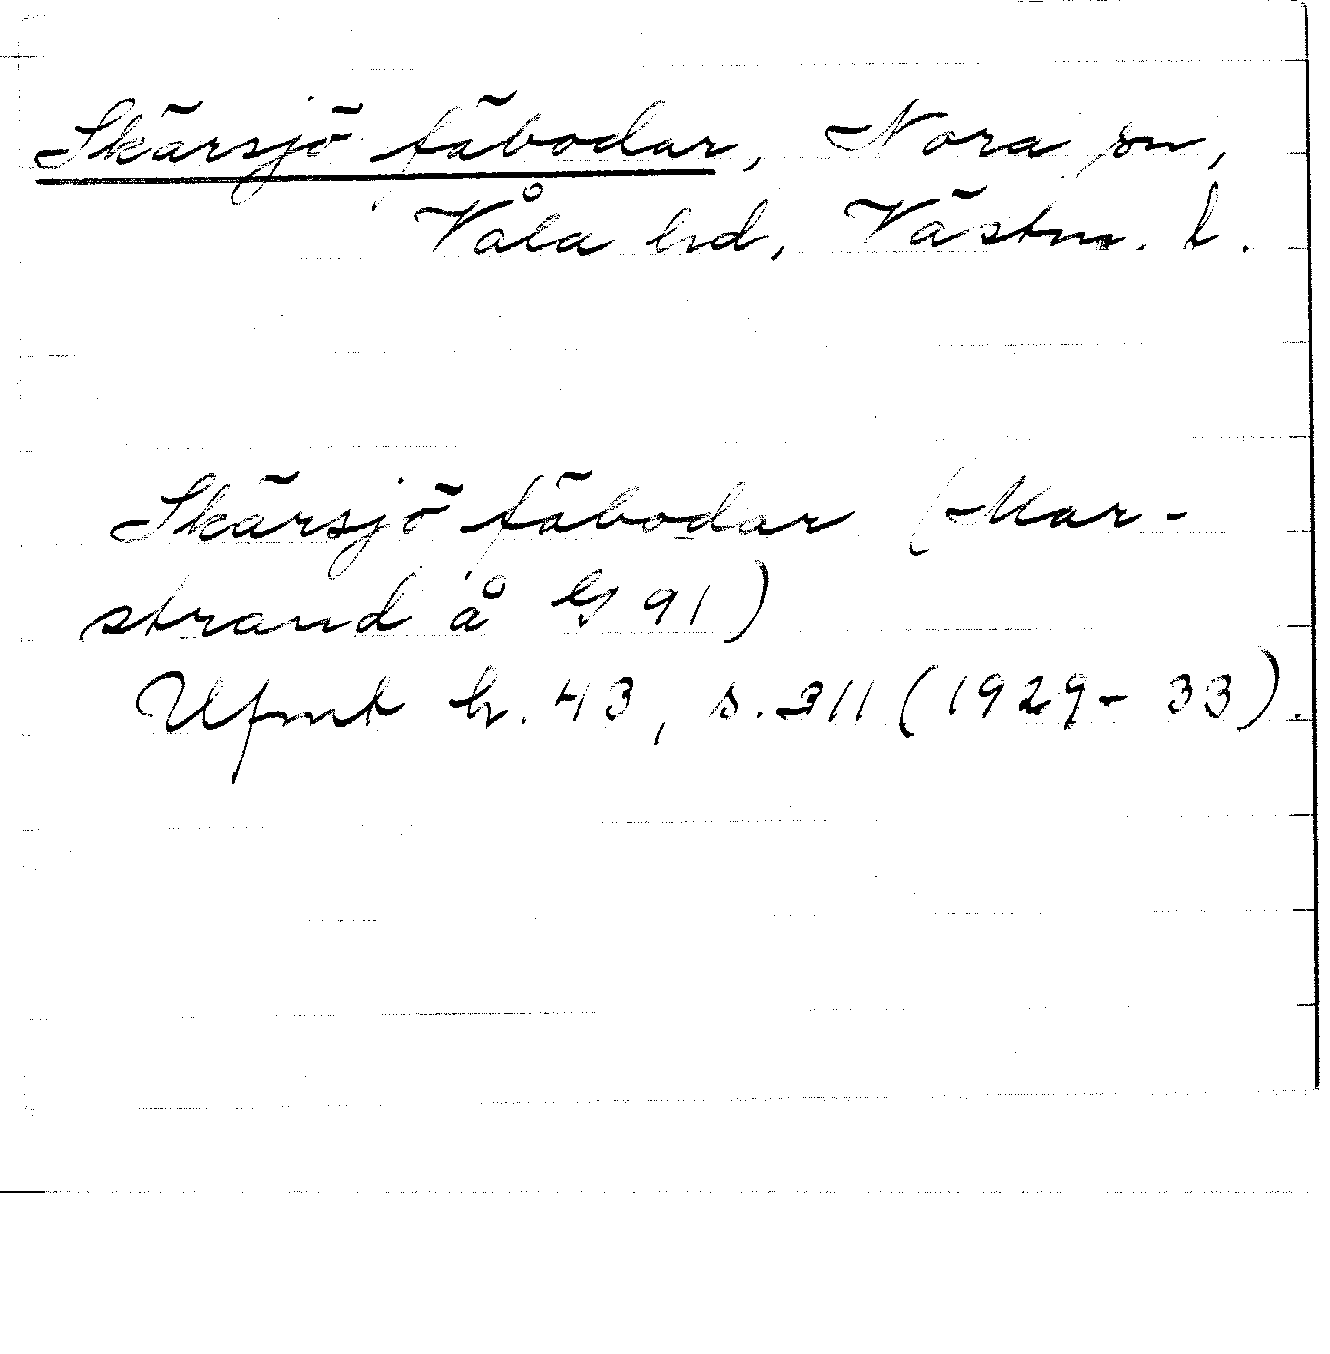 Skärsjö fäbodar, Nora sn,
Våla hd, Västm. l.
Skärsjö fäbodar (Mar-
strand å G 91)
Ufmt h. 43, s. 311 (1929-33).